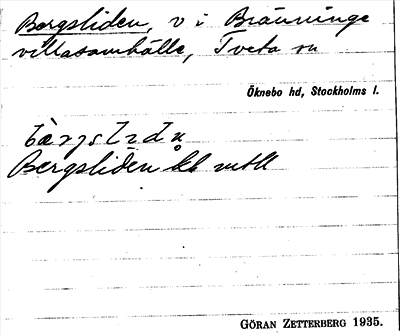 Bergsliden, v i Bränninge
villasamhälle, Tveta sn
Öknebo hd, Stockholms l.
Bergsliden
GÖRAN ZETTERBERG 1935.